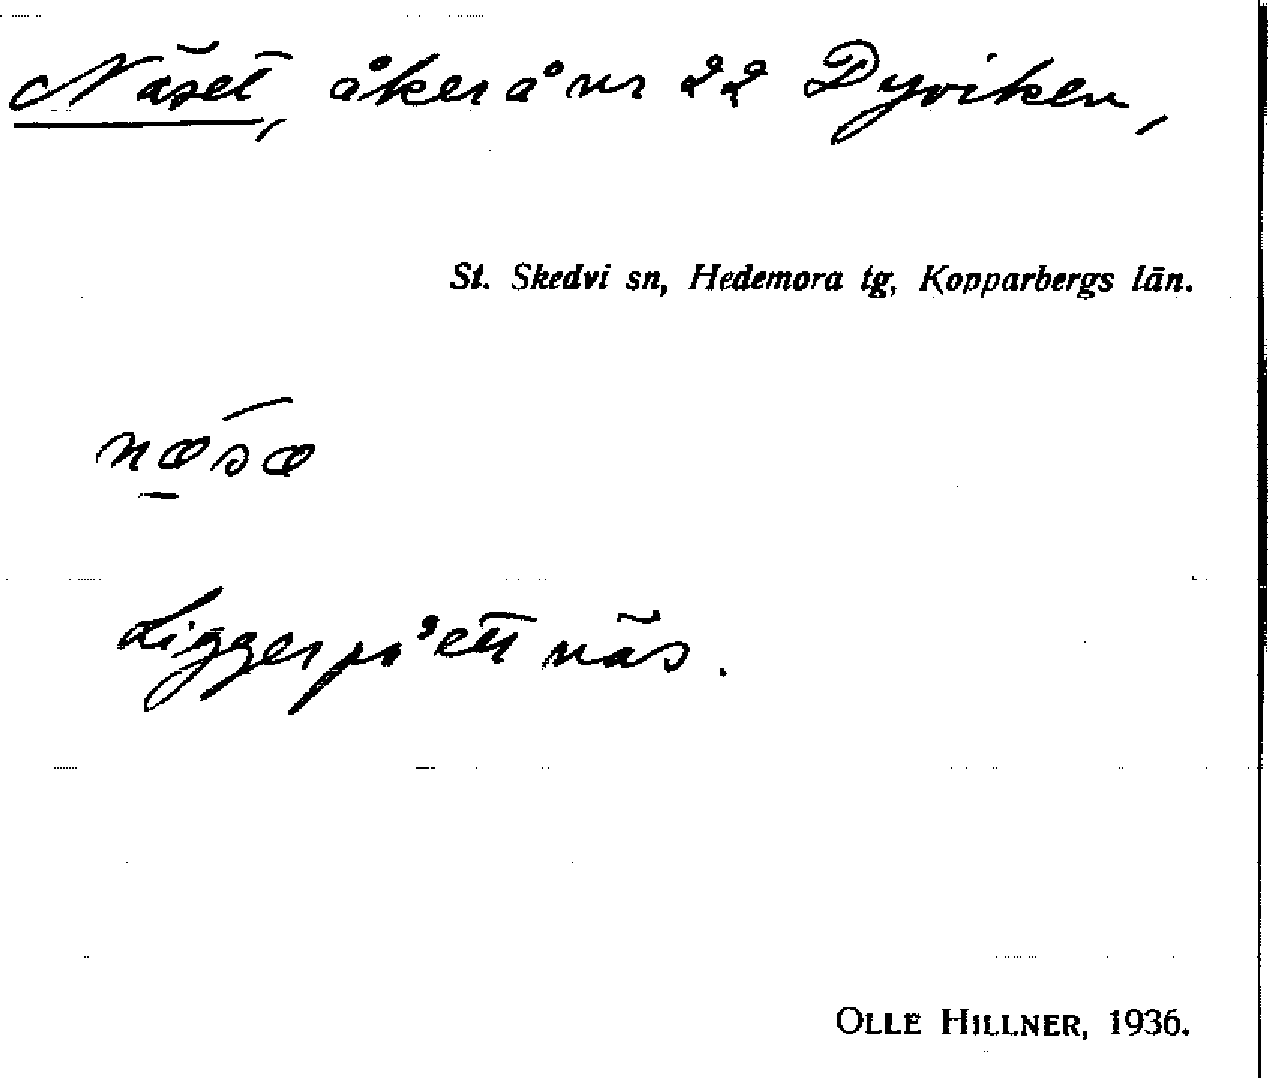 Näset, åker å nr 22 Dyviken,
St. Skedvi sn, Hedemora tg, Kopparbergs län.
næsæ
Ligger på ett näs.
OLLE HILLNER, 1936.